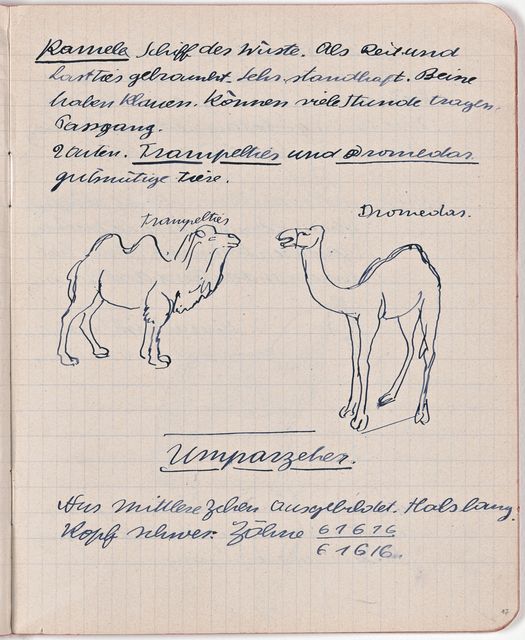 Kamele Schiff des Wüste. Als Reit und
Lasttier gebraucht. Sehr standhaft. Beine
haben Klauen. Können viele Stunde tragen.
Passgang.
2 Arten. Trampeltier und Dromedar.
gutmütige Tiere.
Trampeltier
Dromedar.
Umparzeher.
Aus mittlere Zehen ausgebildet. Hals lang.
Kopf schwer. Zähne 6 1 6 1 6
6 1 6 1 6.
17